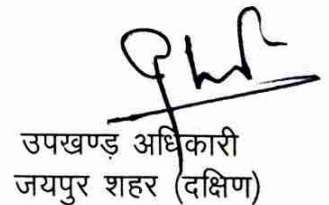 उपखण्ड़ अधिकारी
जयपुर शहर (दक्षिण)